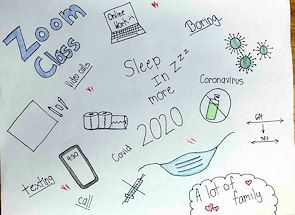 Zoom
Class
Online
Work
Boring
Video calls
Sleep
In zzz
more
Coronavirus
2020
Covid
6ft
texting
call
A lot of
family